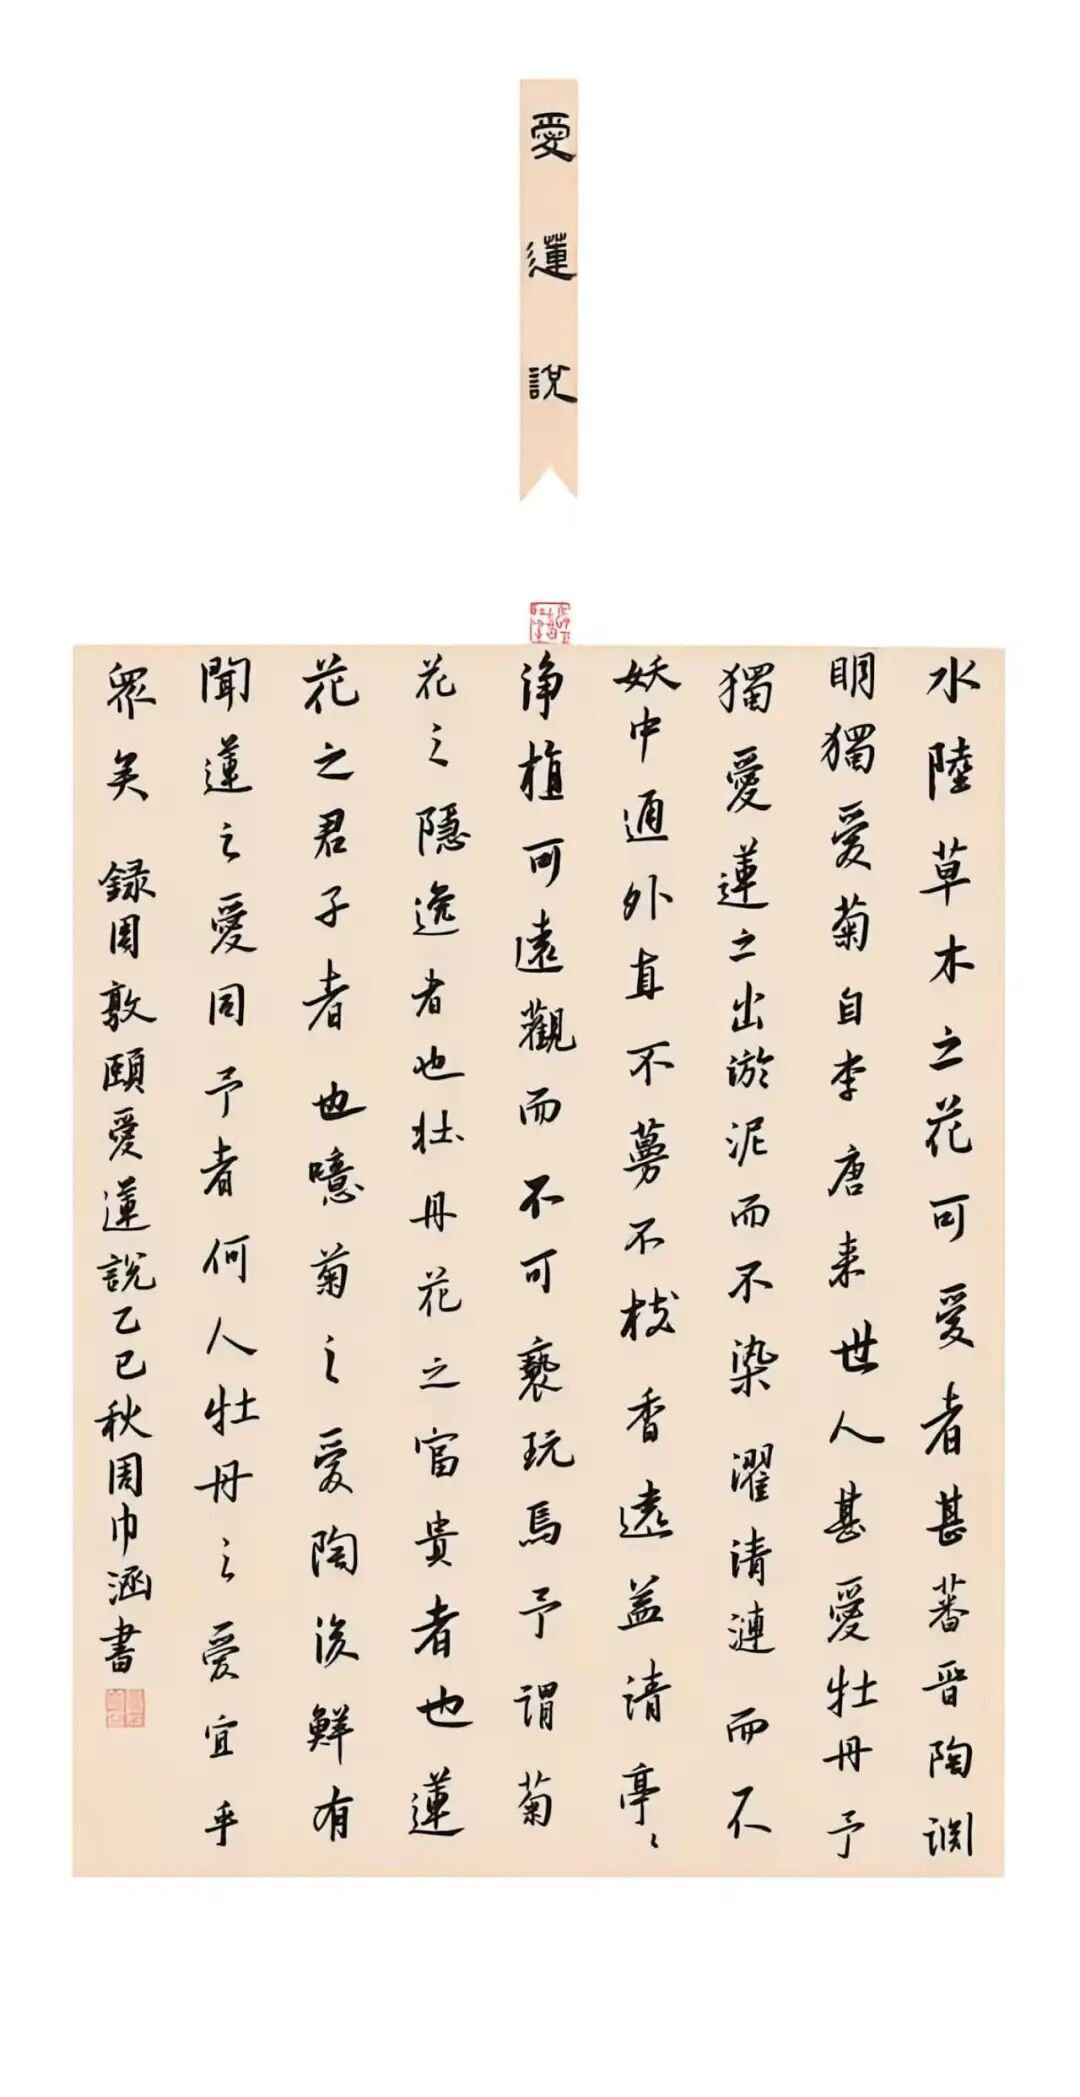 愛蓮說
水陸草木之花可愛者甚蕃晉陶淵
明獨愛菊自李唐来世人甚愛牡丹予
獨愛蓮之出淤泥而不染濯清漣而不
妖中通外直不蔓不枝香遠益清亭〻
淨植可遠觀而不可褻玩焉予謂菊
花之隱逸者也牡丹花之富貴者也蓮
花之君子者也噫菊之愛陶後鮮有
聞蓮之愛同予者何人牡丹之愛宜乎
眾矣 録周敦頤愛蓮說乙巳秋周巾涵書